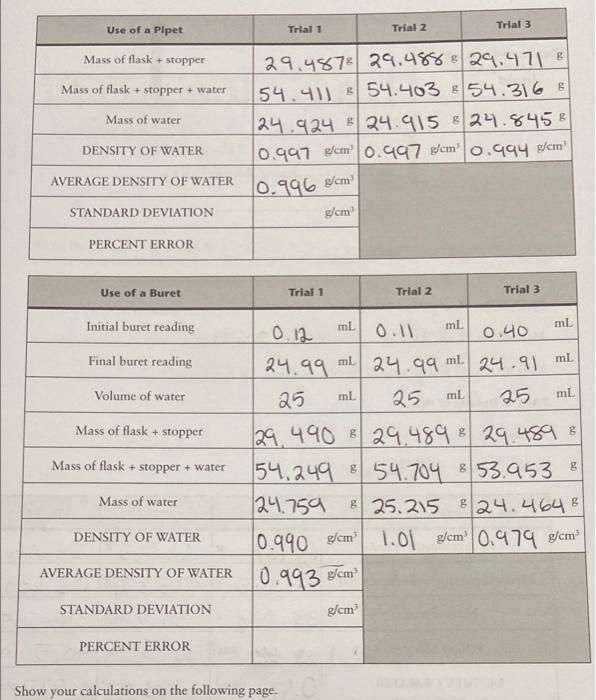 Use of a Pipet Trial 1 Trial 2 Trial 3
Mass of flask + stopper 29.487 g 29.488 g 29.471 g
Mass of flask + stopper + water 54.411 g 54.403 g 54.316 g
Mass of water 24.924 g 24.915 g 24.845 g
DENSITY OF WATER 0.997 g/cm³ 0.997 g/cm³ 0.994 g/cm³
AVERAGE DENSITY OF WATER 0.996 g/cm³
STANDARD DEVIATION g/cm³
PERCENT ERROR
Use of a Buret Trial 1 Trial 2 Trial 3
Initial buret reading 0.12 mL 0.11 mL 0.40 mL
Final buret reading 24.99 mL 24.99 mL 24.91 mL
Volume of water 25 mL 25 mL 25 mL
Mass of flask + stopper 29.490 g 29.489 g 29.489 g
Mass of flask + stopper + water 54.249 g 54.704 g 53.953 g
Mass of water 24.759 g 25.215 g 24.464 g
DENSITY OF WATER 0.990 g/cm³ 1.01 g/cm³ 0.979 g/cm³
AVERAGE DENSITY OF WATER 0.993 g/cm³
STANDARD DEVIATION g/cm³
PERCENT ERROR
Show your calculations on the following page.